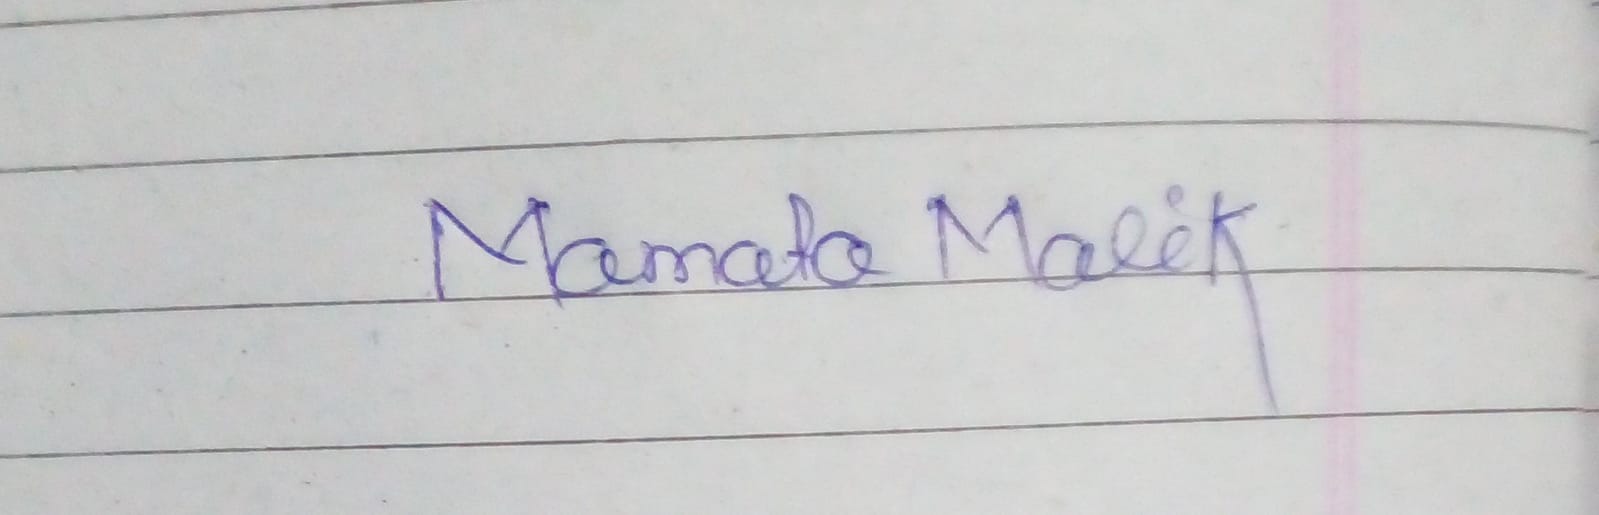 Mamata Malik